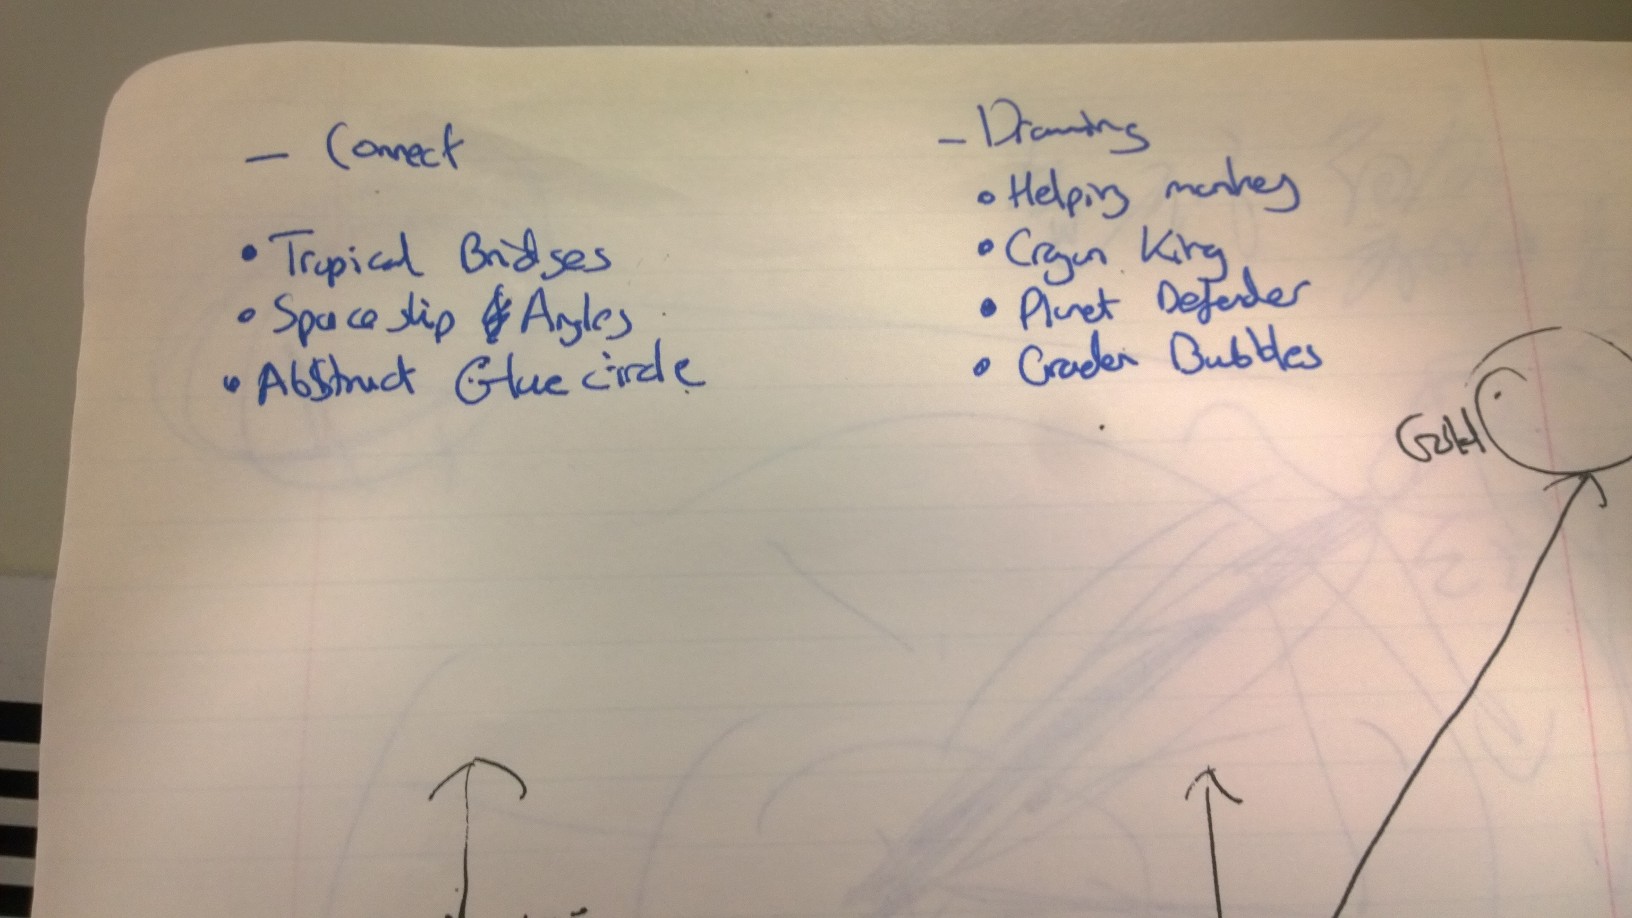 - Connect
• Tropical Bridges
• Spaceship & Angles
• Abstract Glue circle
- Drawing
• Helping monkey
• Crayon King
• Planet Defender
• Bubbles